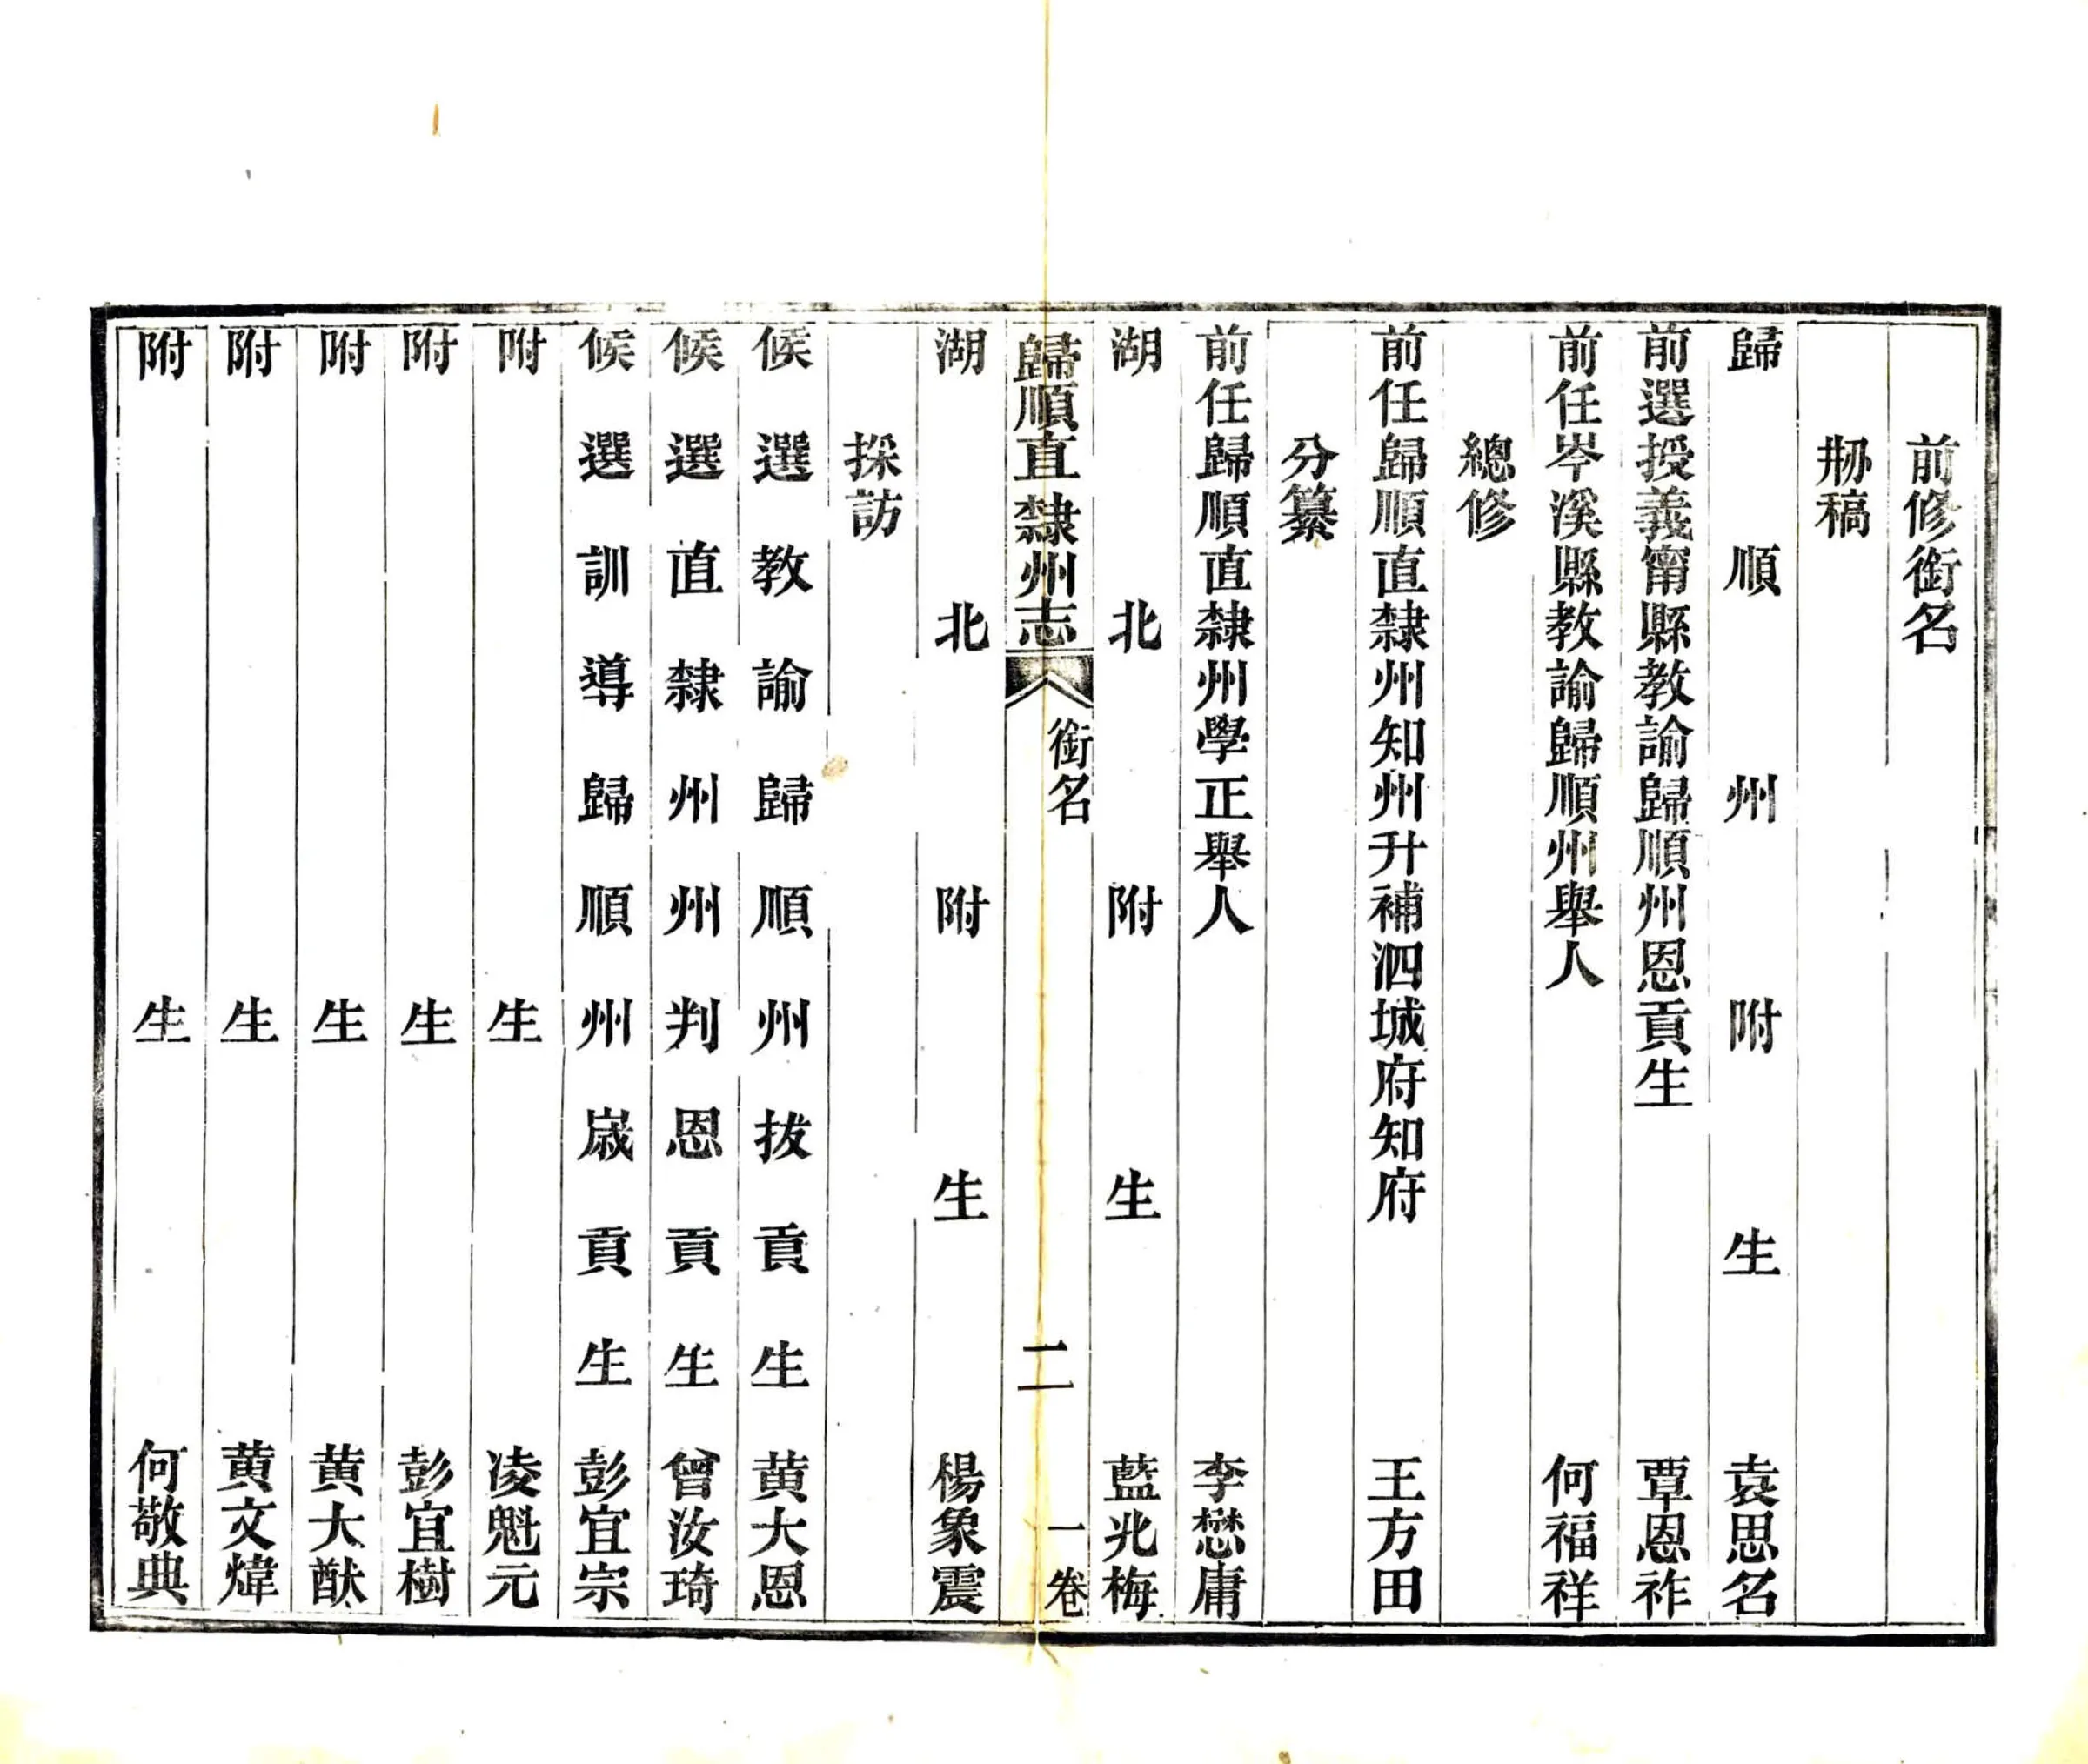 前修銜名
剏稿
歸順州附生 袁思名
前選授義甯縣教諭歸順州恩貢生 覃恩祚
前任岑溪縣教諭歸順州舉人 何福祥
總修
前任歸順直隸州知州升補泗城府知府 王方田
分纂
前任歸順直隸州學正舉人 李懋庸
湖北附生 藍兆梅
歸順直隸州志 銜名 二 一卷
湖北附生 楊象震
採訪
候選教諭歸順州拔貢生 黄大恩
候選直隸州州判恩貢生 曾汝琦
候選訓導歸順州歲貢生 彭宜宗
附生 凌魁元
附生 彭宜樹
附生 黄大猷
附生 黄文煒
附生 何敬典